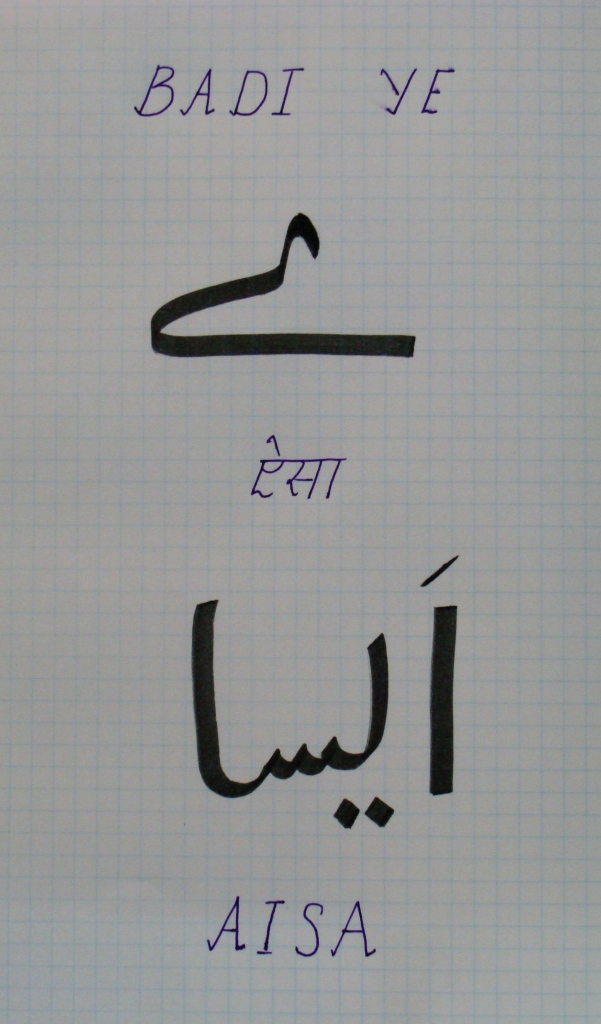 BADI YE
ے
ऐसा
اَیسا
AISA